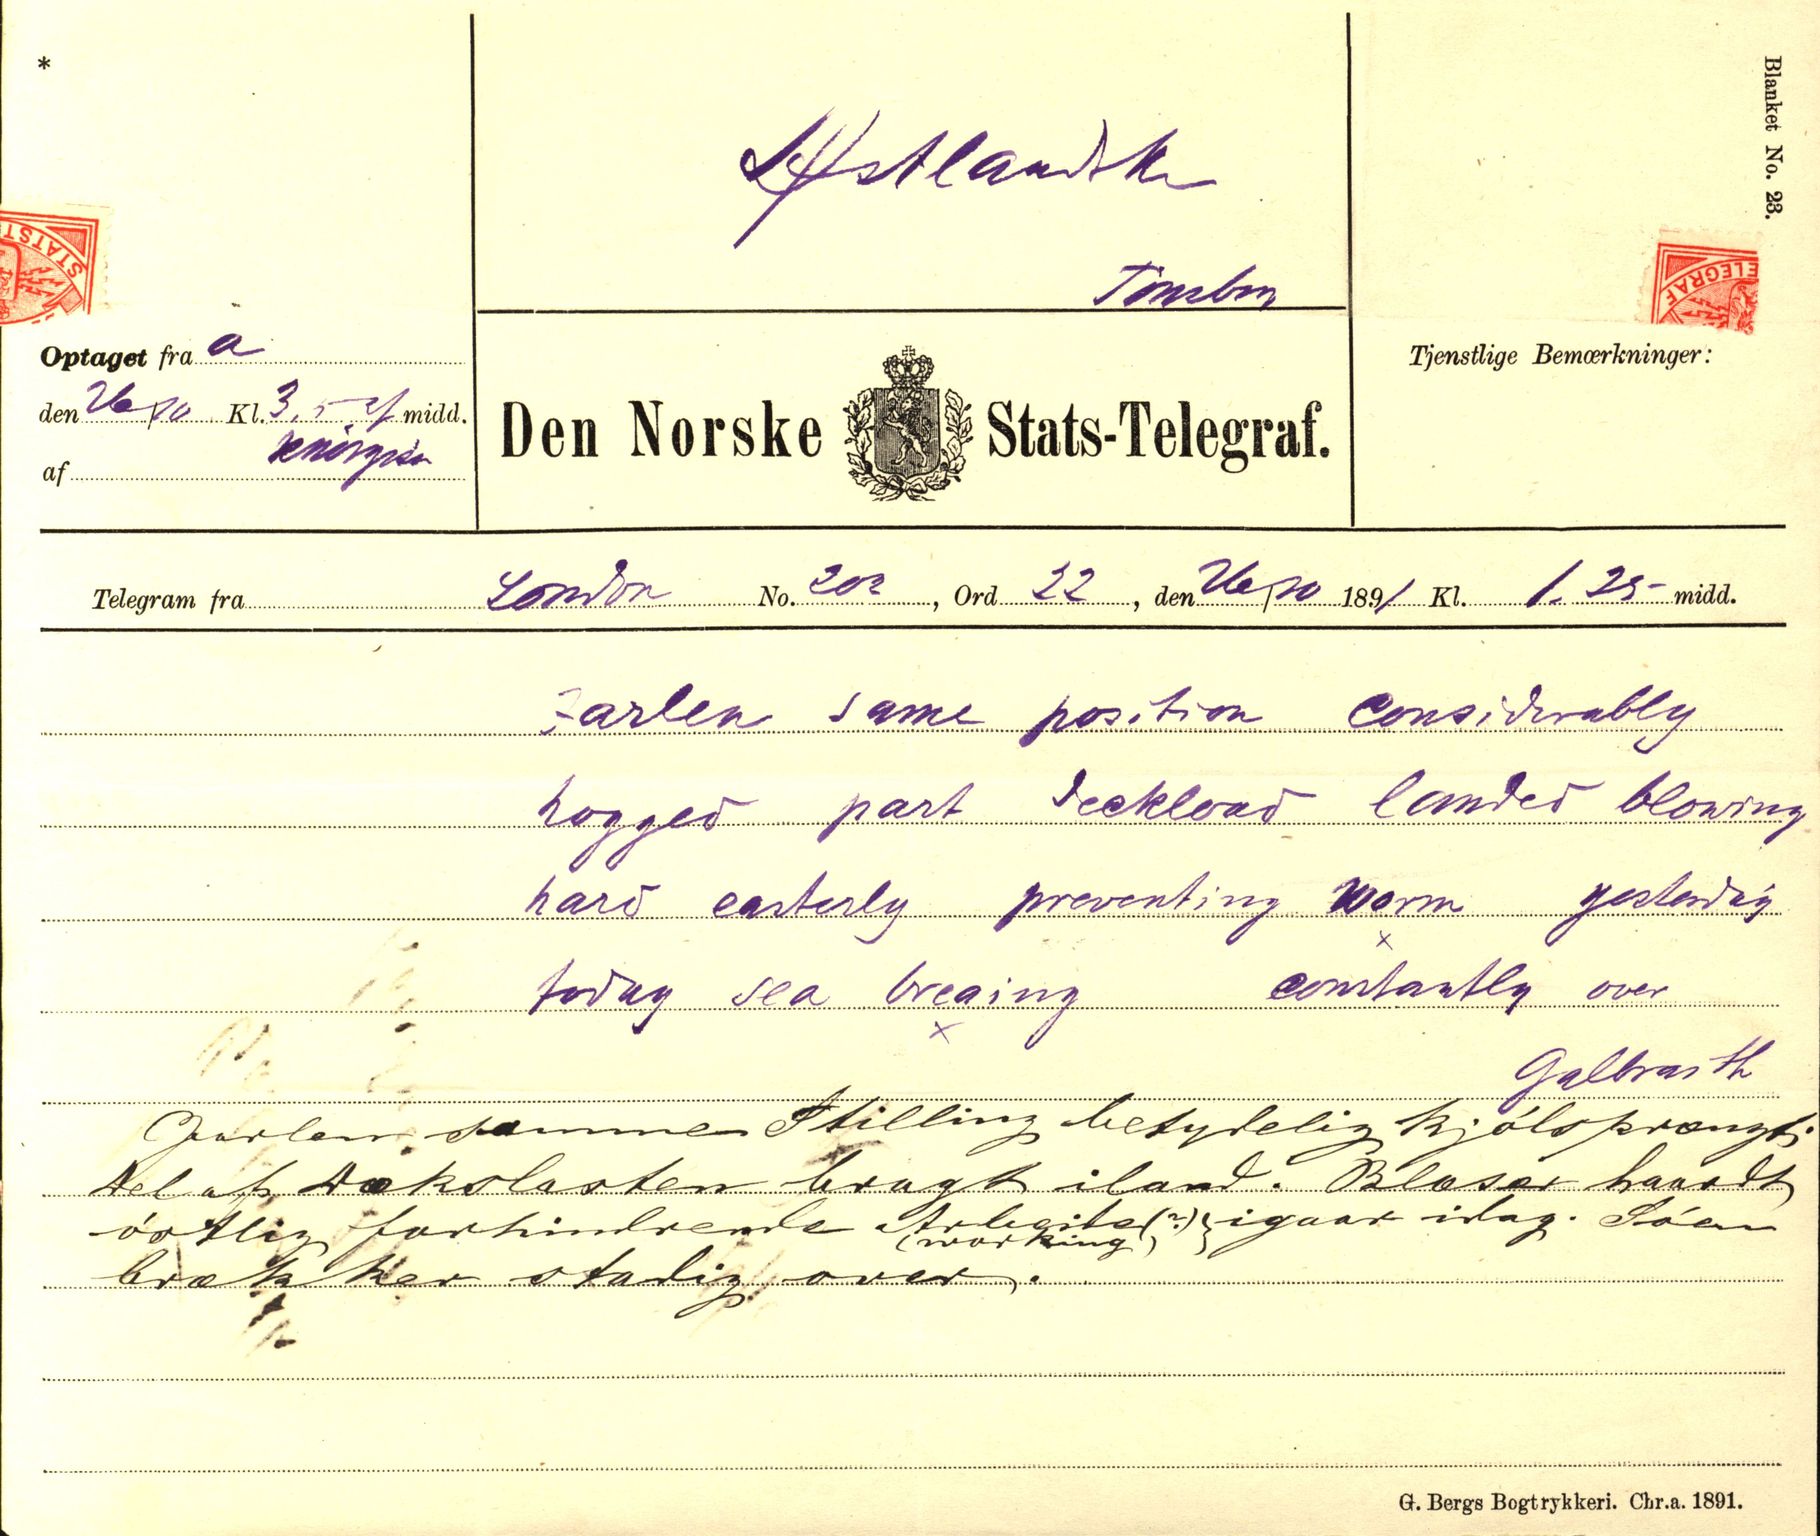 *
Blanket No. 23.
Østlandske
Tønsberg
STATST
TELEGRAF
Optaget fra a
den 26/10 Kl. 3,5 ef midd.
af
Tjenstlige Bemærkninger:
Den Norske Stats-Telegraf.
Telegram fra London No. 202, Ord 22, den 26/10 1891 Kl. 1.25 midd.
Jarlen same position considerably
hogged part deckload landed blowing
hard easterly preventing worm yesterday
x
today sea breaing constantly over
x
Galbraith
Jarlen samme Stilling betydelig kjölsprængt;
Del af Dækslasten bragt iland. Blæser haardt
östlig forhindrende Arbeide (?) } igaar idag. Söen
(working)
brækker stadig over.
G. Bergs Bogtrykkeri. Chr.a. 1891.